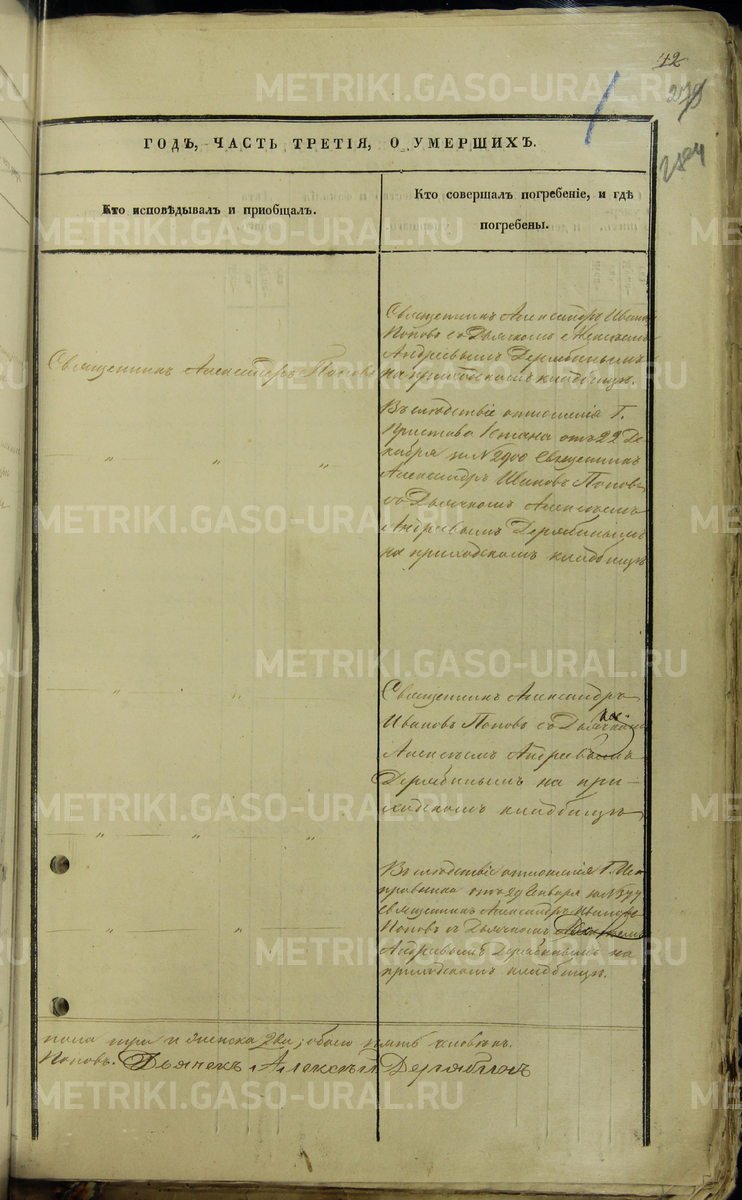 42
ГОДЪ, ЧАСТЬ ТРЕТІЯ, О УМЕРШИХЪ.
Кто исповѣдывалъ и приобщалъ.
Кто совершалъ погребеніе, и гдѣ
погребены.
Священникъ Александръ Поповъ
Священникъ Александръ Иванов
Поповъ съ Дьячкомъ Алексѣемъ
Андреевымъ Дерябинымъ
на приходскомъ кладбищѣ.
Въ слѣдствіе отношенія Г.
Пристава 1 стана отъ 22 Де-
кабря за № 2900 Священникъ
Александръ Ивановъ Поповъ
съ Дьячкомъ Алексѣемъ
Андреевымъ Дерябинымъ
на приходскомъ кладбищѣ
Священникъ Александръ
Ивановъ Поповъ съ Дьячкомъ
Алексѣемъ Андреевымъ
Дерябинымъ на при-
ходскомъ кладбищѣ
Въ слѣдствіе отношенія Г. Ис-
правника отъ 29 Генваря за № 377
священникъ Александръ Ивановъ
Поповъ съ Дьячкомъ Алексѣемъ
Андреевымъ Дерябинымъ на
приходскомъ кладбищѣ.
пола три и женска два; обоего пять человѣкъ.
Поповъ. Дьячекъ Алексѣй Дерябинъ
METRIKI.GASO-URAL.RU